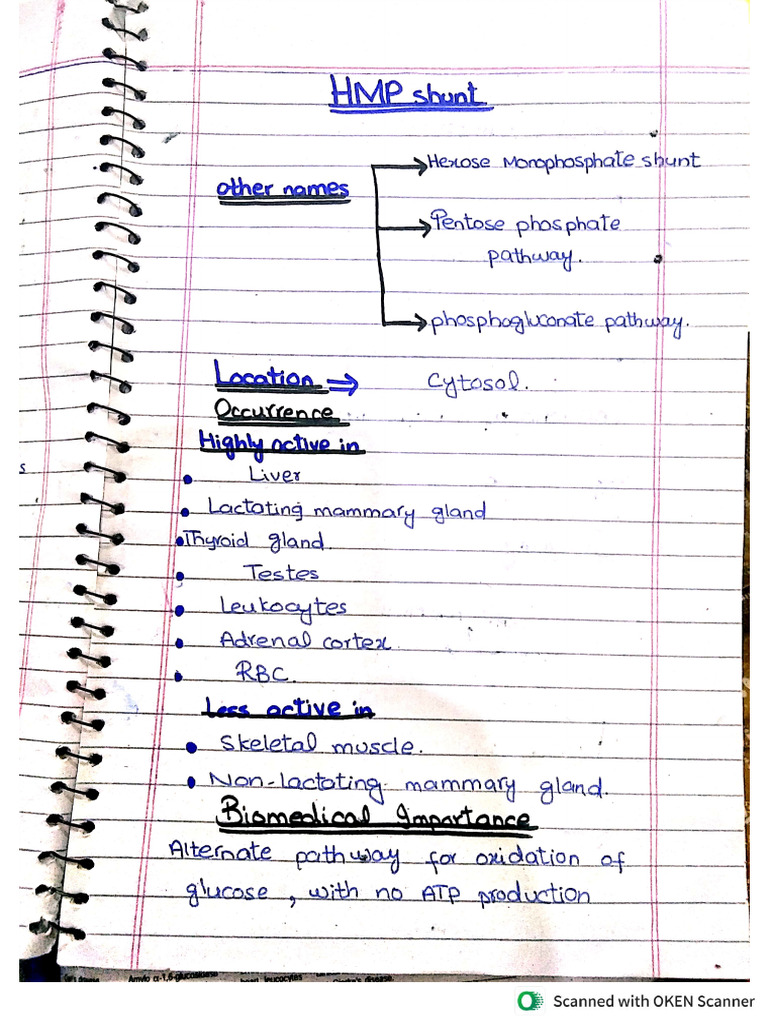 HMP shunt
Hexose Monophosphate shunt
other names
Pentose phosphate
pathway.
phosphogluconate pathway.
Location ⇒ Cytosol.
Occurrence
Highly active in
s
• Liver
• Lactating mammary gland
• Thyroid gland
• Testes
• Leukocytes
• Adrenal cortex
• RBC.
Less active in
• Skeletal muscle.
• Non-Lactating mammary gland.
Biomedical Importance
Alternate pathway for oxidation of
glucose, with no ATP production
Amylo α-1,6-glucosidase leucocytes disease.
Scanned with OKEN Scanner